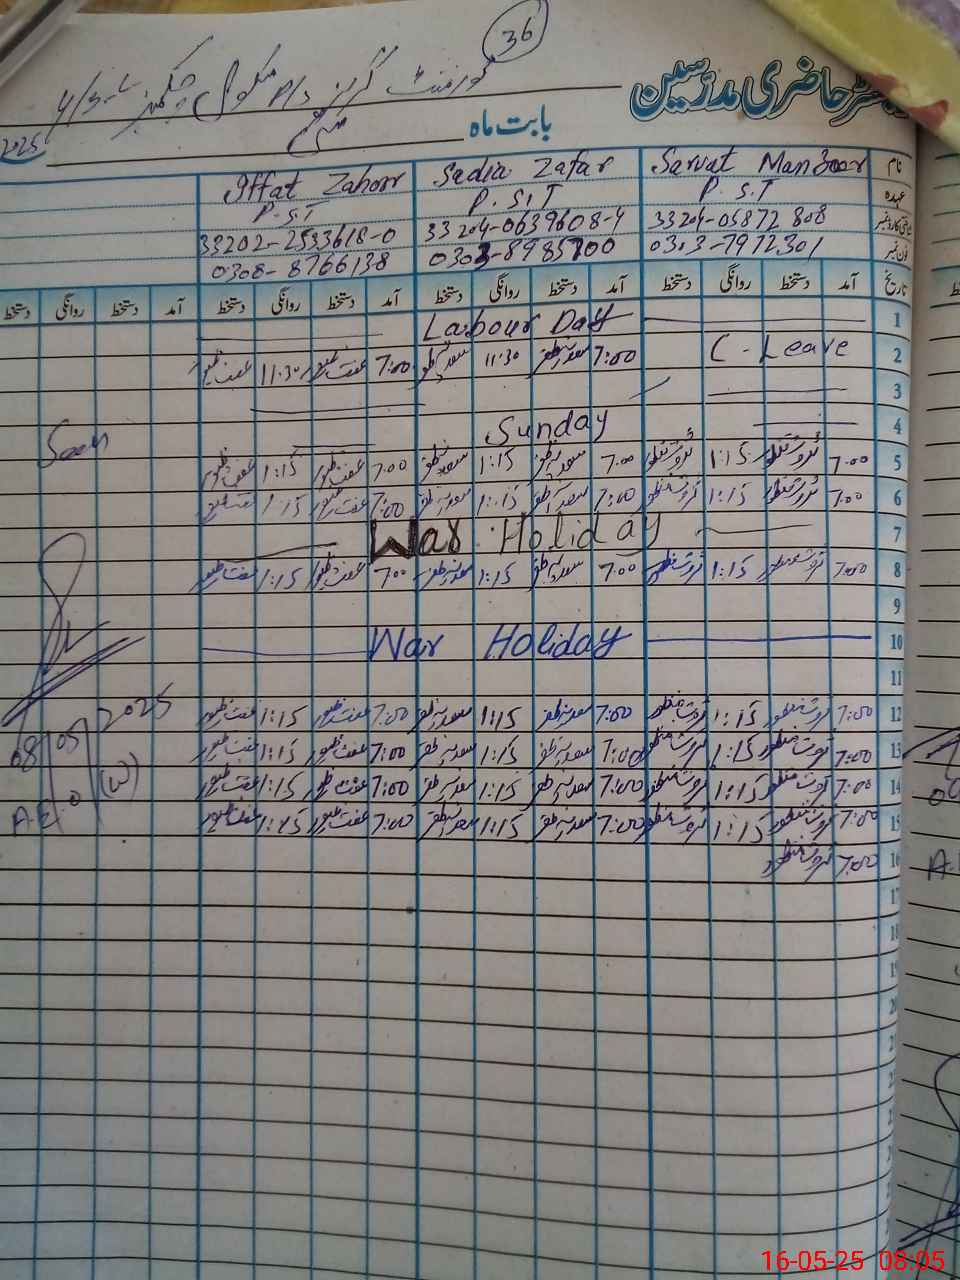 36
رجسٹر حاضری مدرسین
گورنمنٹ گرلز
بابت ماہ
2025
نام Sarvat Manzoor Sadia Zafar Iffat Zahoor
عہدہ P.S.T P.S.T P.S.T
33204-0639608-4 33202-2533618-0
فون نمبر 0303-7972301 0308-8766138
تاریخ آمد دستخط روانگی دستخط آمد دستخط روانگی دستخط آمد دستخط روانگی دستخط آمد دستخط روانگی دستخط
1 Labour Day
2 C-Leave 7:00 سعدیہ ظفر 11:30 سعدیہ ظفر 7:00 عفت ظہور 11:30 عفت ظہور
3
4 Sunday
Seen
5 7:00 ثروت منظور 1:15 ثروت منظور 7:00 سعدیہ ظفر 1:15 سعدیہ ظفر 7:00 عفت ظہور 1:15 عفت ظہور
6 7:00 ثروت منظور 1:15 ثروت منظور 7:00 سعدیہ ظفر 1:15 سعدیہ ظفر 7:00 عفت ظہور 1:15 عفت ظہور
7 War Holiday
8 7:00 ثروت منظور 1:15 ثروت منظور 7:00 سعدیہ ظفر 1:15 سعدیہ ظفر 7:00 عفت ظہور 1:15 عفت ظہور
9
10 War Holiday
11
12 7:00 ثروت منظور 1:15 ثروت منظور 7:00 سعدیہ ظفر 1:15 سعدیہ ظفر 7:00 عفت ظہور 1:15 عفت ظہور
08/05/2025
13 7:00 ثروت منظور 1:15 ثروت منظور 7:00 سعدیہ ظفر 1:15 سعدیہ ظفر 7:00 عفت ظہور 1:15 عفت ظہور
14 7:00 ثروت منظور 1:15 ثروت منظور 7:00 سعدیہ ظفر 1:15 سعدیہ ظفر 7:00 عفت ظہور 1:15 عفت ظہور
A.E.O (W)
15 7:00 ثروت منظور 1:15 ثروت منظور 7:00 سعدیہ ظفر 1:15 سعدیہ ظفر 7:00 عفت ظہور 1:15 عفت ظہور
16 7:00 ثروت منظور
17
18
19
20
16-05-25 08:05